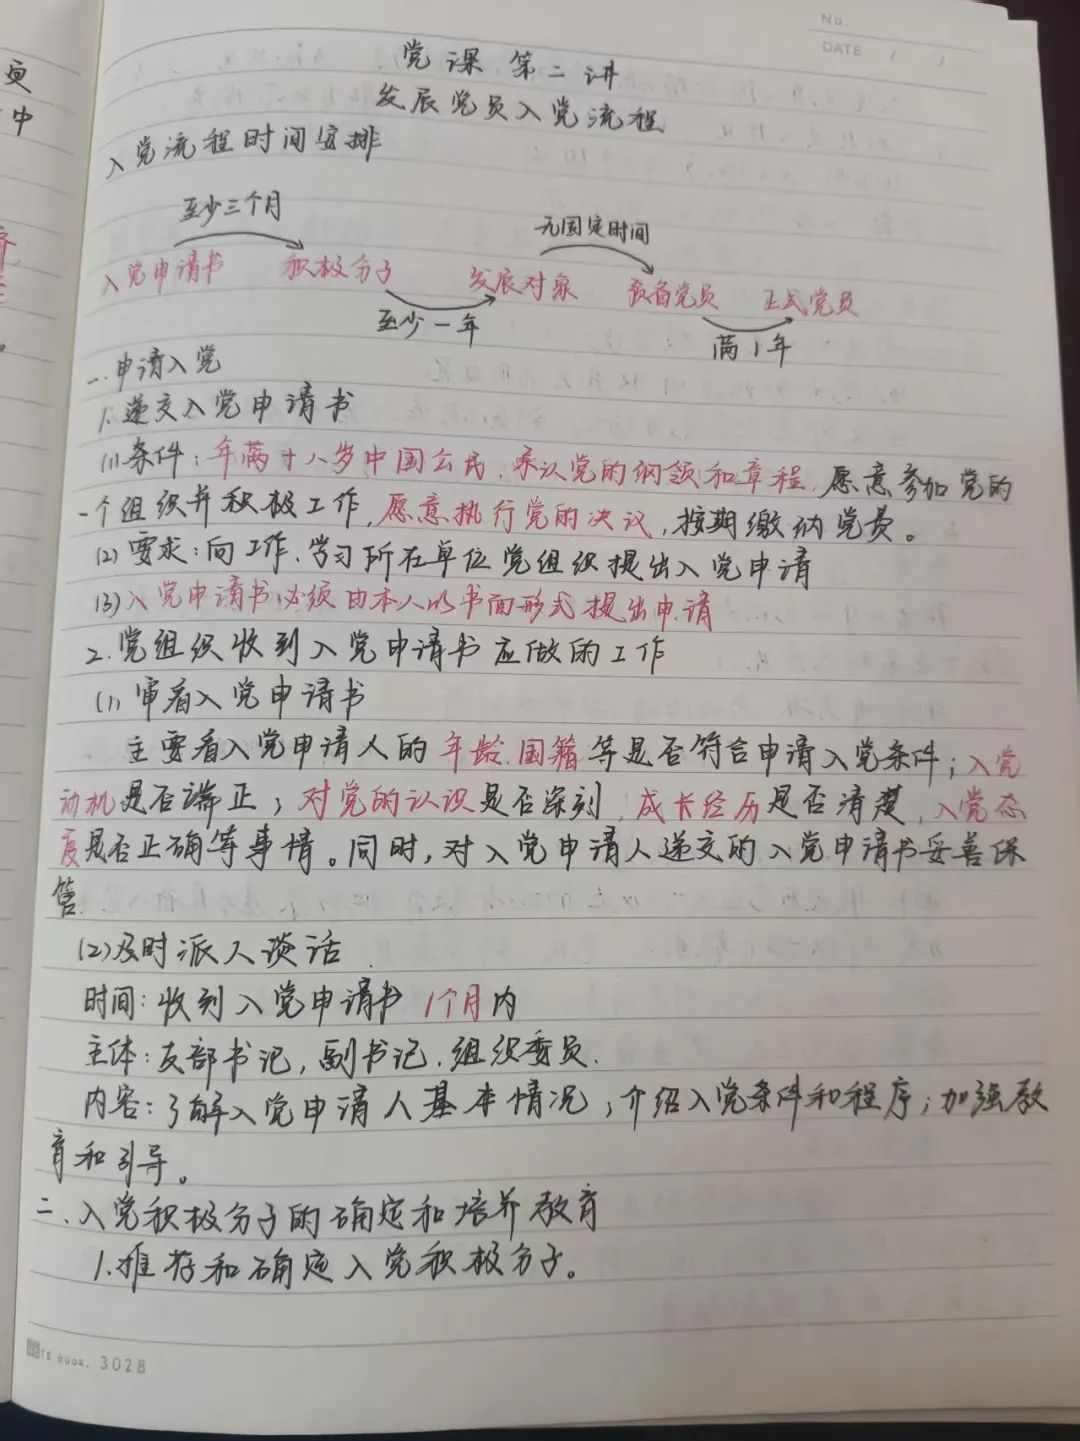 更
中
No.
DATE
党课第二讲
发展党员入党流程
入党流程时间安排
至少三个月
无固定时间
入党申请书 积极分子 发展对象 预备党员 正式党员
至少一年
满1年
一.申请入党
1.递交入党申请书
(1)条件:年满十八岁中国公民,承认党的纲领和章程,愿意参加党的
一个组织并积极工作,愿意执行党的决议,按期缴纳党员。
(2)要求:向工作、学习所在单位党组织提出入党申请
(3)入党申请书必须由本人以书面形式提出申请
2.党组织收到入党申请书应做的工作
(1)审看入党申请书
主要看入党申请人的年龄、国籍等是否符合申请入党条件;入党
动机是否端正;对党的认识是否深刻,成长经历是否清楚,入党态
度是否正确等事情。同时,对入党申请人递交的入党申请书妥善保
管.
(2)及时派人谈话.
时间:收到入党申请书1个月内
主体:支部书记,副书记.组织委员.
内容:了解入党申请人基本情况;介绍入党条件和程序;加强教
育和引导。
二.入党积极分子的确定和培养教育
1.推荐和确定入党积极分子。
NOTE BOOK. 3028